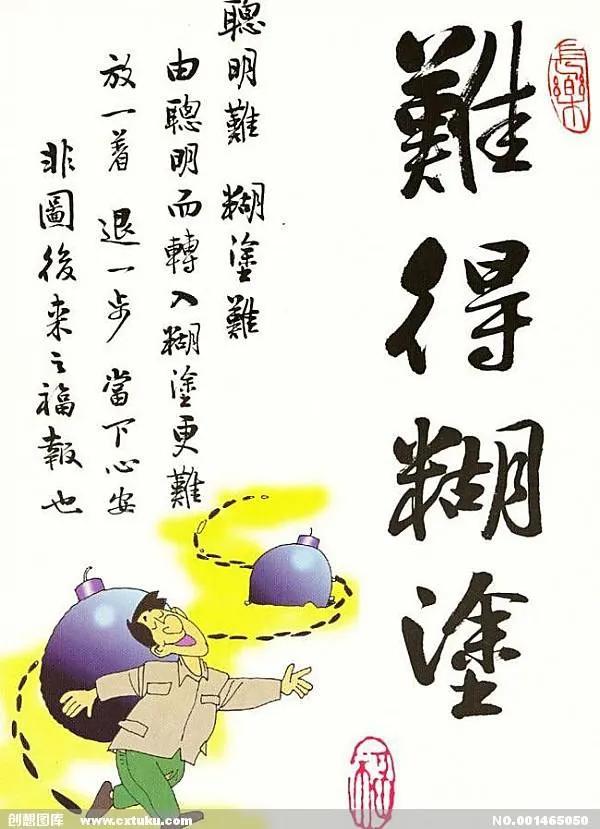 難得糊塗
長樂
聰明難 糊塗難
由聰明而轉入糊塗更難
放一著 退一步 當下心安
非圖後来之福報也
创想图库 www.cxtuku.com
NO.001465050